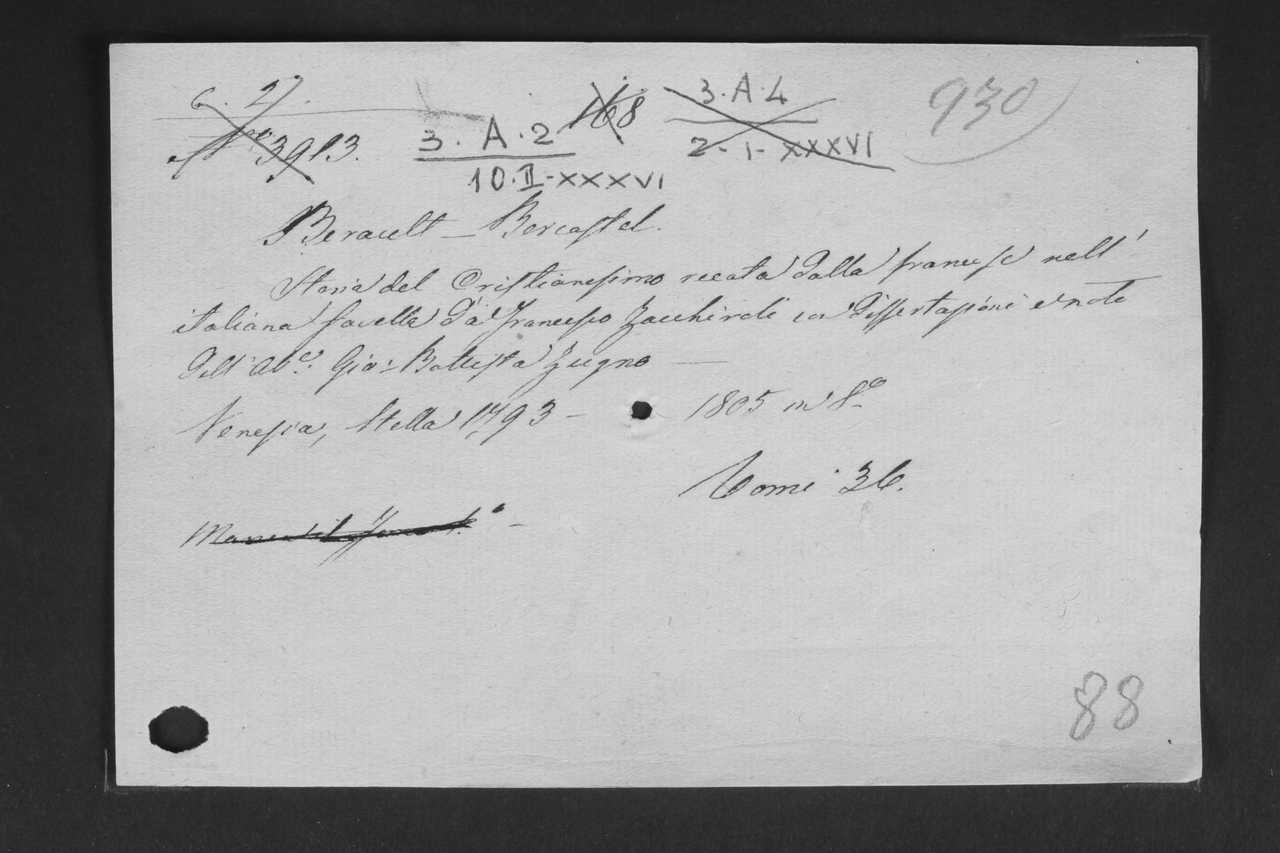 G. 27.
N.º 3913.
3. A. 2
10. II - XXXVI
168
3. A. 4
2 - I - XXXVI
930
Berault - Bercastel.
Storia del Cristianesimo recata dalla francese nell'
italiana favella da Francesco Zacchiroli con dissertazioni e note
dell' Ab.e Gio: Battista Zugno —
Venezia, Stella 1793 - 1805 in 8º
Tomi 36.
88